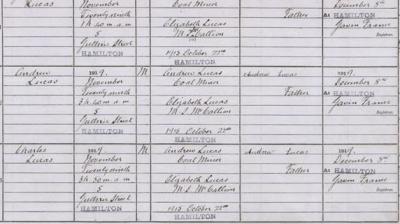 Lucas November Coal Miner December 8th
Twenty ninth Father At HAMILTON
Elizabeth Lucas Gavin
5 M.S. McCallum Registrar
Guthrie Street
HAMILTON 1913 October 22nd
HAMILTON
Andrew 1919. M Andrew Lucas Andrew Lucas 1919.
Lucas November Coal Miner December 8th
Twenty ninth Father At HAMILTON
3h. 40m a m Elizabeth Lucas Gavin
5 M.S. McCallum Registrar
Guthrie Street
HAMILTON 1913 October 22nd
HAMILTON
Charles 1919. M Andrew Lucas Andrew Lucas 1919.
Lucas November Coal Miner December 8th
Twenty ninth Father At HAMILTON
Elizabeth Lucas Gavin
5 M.S. McCallum Registrar
Guthrie Street
HAMILTON 1913 October 22nd
HAMILTON